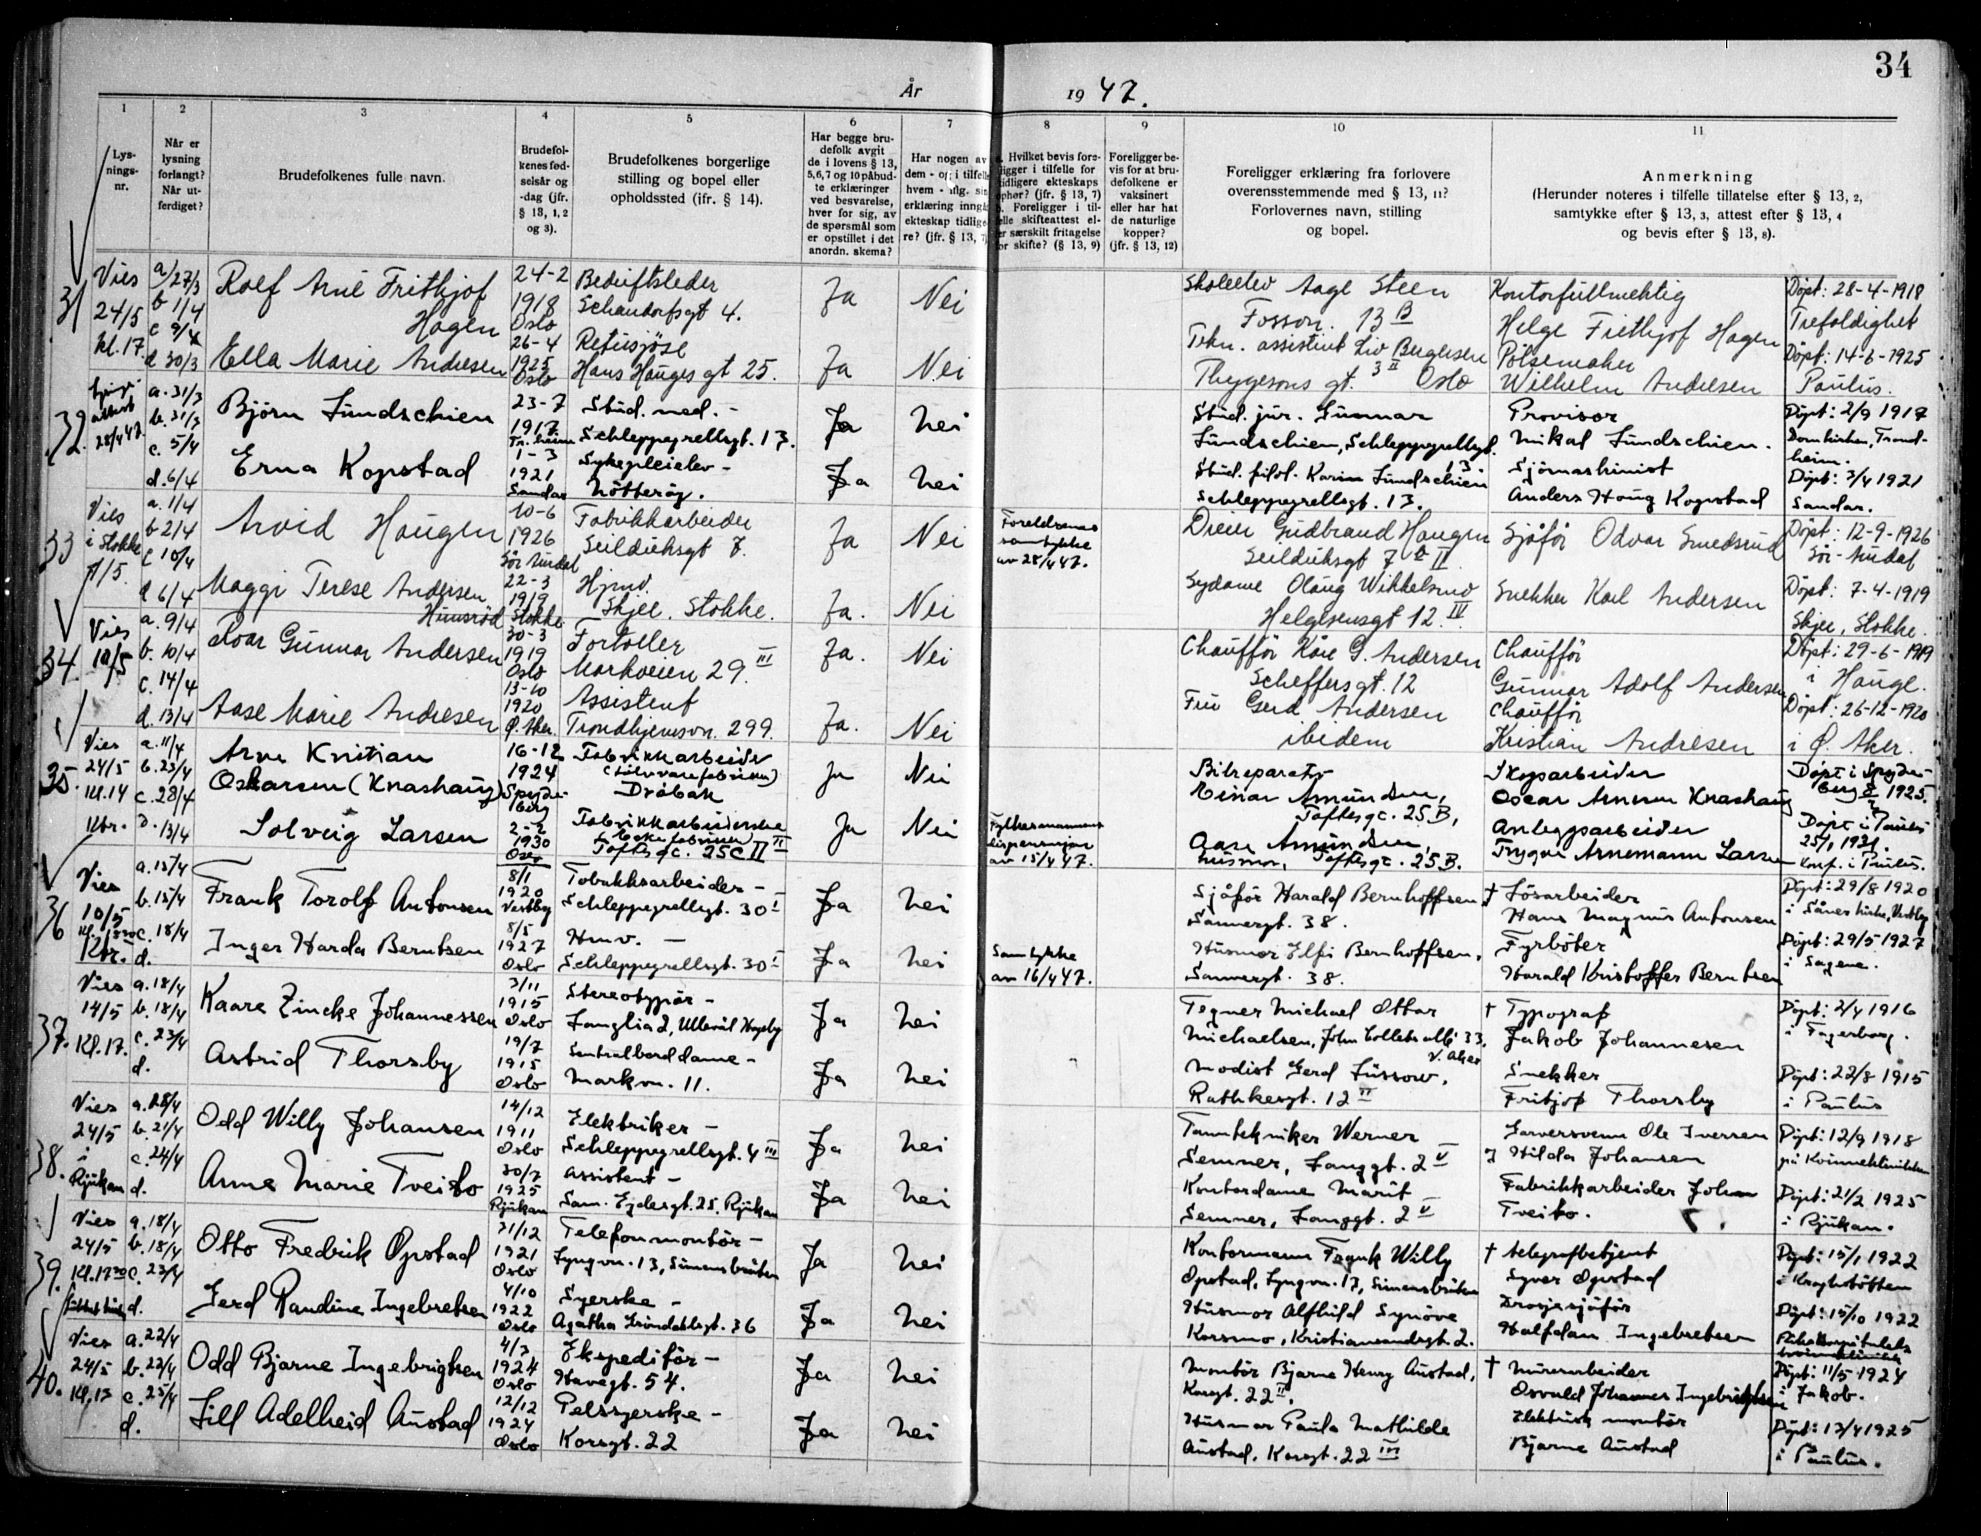 34
År 1947.
1 2 3 4 5 6 7 8 9 10 11
Lys-
nings-
nr.
Når er
lysning
forlangt?
Når ut-
ferdiget?
Brudefolkenes fulle navn.
Brudefol-
kenes fød-
selsår og
-dag (jfr.
§ 13, 1, 2
og 3).
Brudefolkenes borgerlige
stilling og bopel eller
opholdssted (jfr. § 14).
Har begge bru-
defolk avgit
de i lovens § 13,
5,6,7 og 10 påbud-
te erklæringer
ved besvarelse,
hver for sig, av
de spørsmål som
er opstillet i det
anordn. skema?
Har nogen av
dem - og i tilfelle
hvem - aflg. sin
erklæring inngå
ekteskap tidlige-
re? (jfr. § 13, 7)
Hvilket bevis fore-
ligger i tilfelle for
tidligere ekteskaps
ophør? (jfr. § 13, 7)
b. Foreligger i til-
felle skifteattest el-
ler særskilt fritagelse
for skifte? (§ 13, 9)
Foreligger be-
vis for at bru-
defolkene er
vaksinert
eller har hat
de naturlige
kopper?
(jfr. § 13, 12)
Foreligger erklæring fra forlovere
overensstemmende med § 13, 11?
Forlovernes navn, stilling
og bopel.
Anmerkning
(Herunder noteres i tilfelle tillatelse efter § 13, 2,
samtykke efter § 13, 3, attest efter § 13, 4
og bevis efter § 13, 8).
31
Vies
24/5
kl. 17.
a/27/3
b 1/4
c 9/4
d 30/3
Rolf Arne Frithjof
Hagen
24-2
1918
Oslo
Bedriftsleder
Schandorfsgt 4.
Ja
Nei
Skoleelev Aage Steen
Fosson. 13 B
Kontorfullmektig
Helge Frithjof Hagen
Døpt: 28-4-1918
Trefoldighet
Ella Marie Andresen
26-4
1925
Oslo
Hans Hauges gt 25.
Ja
Nei
Tekn. assistent Liv Bergersen
Thygesons gt. 3 II Oslo
Pølsemaker
Wilhelm Andresen
Døpt: 14-6-1925
Paulus.
32.
attest
28/4 47.
a. 31/3
b. 31/3
c. 5/4
d. 6/4
Bjørn Lundschien
23-7
1917
Tr.heim
Stud. med. -
Schleppegrellsgt. 13.
Ja
Nei
Stud. jur. Gunnar
Lundschien, Schleppegrellsgt.
13.
Provisor
Mikal Lundschien.
Døpt: 2/9 1917
Domkirken, Trond-
heim.
Erna Kopstad
1-3
1921
Sandar
Sykepleielev -
Nøtterøy.
Ja
Nei
Stud. filol. Karin Lundschien
Schleppegrellsgt. 13.
Sjømaskinist
Anders Haug Kopstad
Døpt: 3/4 1921
Sandar.
33
Vies
i Stokke
/5.
a. 1/4
b 2/4
c 10/4
d 6/4
Arvid Haugen
10-6
1926
Sør Aurdal
Fabrikkarbeider
Seilduksgt 7.
Ja
Nei
Foreldrenes
samtykke
av 28/4 47.
Dreier Gudbrand Haugen
Seilduksgt 7 b II
Sjåfør Odvar Smedsrud
Døpt: 12-9-1926
Sør-Aurdal
Maggi Terese Andersen
22-3
1919
Stokke
Hjmv.
Skjee. Stokke.
Ja.
Nei
Sydame Olaug Wikkelsmo
Helgesensgt 12. IV
Snekker Karl Andersen
Døpt: 7-4-1919
Skjee, Stokke.
34.
Vies
10/5
a. 9/4
b. 10/4
c. 14/4
d. 13/4
Roar Gunnar Andersen
30-3
1919
Oslo
Fortoller
Markveien 29. III
Ja.
Nei
Chauffør Kåre G. Andersen
Scheffersgt. 12
Chauffør
Gunnar Adolf Andersen
Døpt: 29-6-1919
i Hauge.
Aase Marie Andresen
13-10
1920
Ø. Aker.
Assistent
Trondhjemsvn. 299.
Ja.
Nei
Fru Gerd Andersen
ibidem
Chauffør
Kristian Andresen
Døpt: 26-12-1920
i Ø. Aker.
35.
Vies
24/5
kl. 14
a. 11/4
b. 23/4
c. 28/4
d. 13/4
Arne Kristian
Oskarsen (Knashaug)
16-12
1924
Spyde-
berg
Fabrikkarbeider
(Sølvvarefabrikken)
Drøbak
Ja
Nei
Bilreparatør
Einar Amundsen,
Toftesgt. 25 B,
Skogsarbeider
Oscar Arnesen Knashaug
Døpt i Spyde-
berg 1925.
Solveig Larsen
2-2
1930
Oslo
Fabrikkarbeiderske
Toftesgt. 25 C II
Ja
Nei
Fylkesmannens
dispensasjon
av 15/4 47.
Aase Amundsen,
husmor, Toftesgt. 25 B.
Anleggsarbeider
Trygve Arnemann Larsen
Døpt i Paulus
25/1 1931.
Konf. i Paulus.
36
Vies
10/5
a. 15/4
b. 15/4
c. 18/4
d.
Frank Torolf Antonsen
8/1
1920
Vestby
Tobakksarbeider -
Schleppegrellsgt. 30 I
Ja
Nei
Sjåfør Harald Bernhoffsen,
Sannergt. 38.
† Løsarbeider
Hans Magnus Antonsen
Døpt: 29/8 1920
i Såner kirke, Vestby
Inger Harda Berntsen
8/5
1927
Oslo
Hmv. -
Schleppegrellsgt. 30 I
Ja
Nei
Samtykke
av 16/4 47.
Husmor Elfi Bernhoffsen,
Sannergt. 38.
Fyrbøter
Harald Kristoffer Berntsen
Døpt: 29/5 1927
i Sagene.
37.
Vies
14/5
Kl. 17.
a. 18/4
b. 18/4
c. 23/4
d.
Kaare Zincke Johannessen
3/11
1915
Oslo
Stereotypør -
Langlia 2, Ullevål Hageby
Ja
Nei
Tegner Michael Ottar
Michaelsen, John Colletts allé 33,
V. Aker
† Typograf
Jakob Johannesen
Døpt: 2/4 1916
i Fagerborg.
Astrid Thorsby
19/7
1915
Oslo
Sentralborddame -
Markvn. 11.
Ja
Nei
Modist Gerd Lüssow,
Rathkesgt. 12 II
Snekker
Fritjof Thorsby
Døpt: 22/8 1915
i Paulus
38.
Vies
24/5
i
Rjukan
a. 28/4
b. 21/4
c. 24/4
d.
Odd Willy Johansen
14/12
1911
Oslo
Elektriker -
Schleppegrellsgt. 4 III
Ja
Nei
Tanntekniker Werner
Semner, Langgt. 2 V
Garversvenn Ole Iversen
og Hilda Johansen
Døpt: 12/9 1918
på Kvinneklinikken
Anne Marie Tveito
30/7
1925
Rjukan
Assistent -
Sam. Eydesgt. 25, Rjukan
Ja
Nei
Kontordame Marit
Semner, Langgt. 2 V
Fabrikkarbeider Johan
Tveito.
Døpt: 21/2 1925
i Rjukan.
39.
Vies
24/5
Kl. 17 30
a. 18/4
b. 18/4
c. 23/4
d.
Otto Fredrik Opstad
31/12
1921
Oslo
Telefonmontør -
Lyngvn. 13, Simensbråten
Ja
Nei
Kontormann Frank Willy
Opstad, Lyngvn. 13, Simensbråten
† Telegrafbetjent
Syver Opstad
Døpt: 15/1 1922
i Kraghstøtten
Gerd Randine Ingebretsen
4/10
1922
Oslo
Syerske -
Agathe Grøndahlsgt. 36
Ja
Nei
Husmor Alfhild Synøve
Korsmo, Kristiansandsgt. 2.
Drosjesjåfør
Halfdan Ingebretsen
Døpt: 15/10 1922
40.
Vies
24/5
Kl. 17
a. 22/4
b. 22/4
c. 25/4
d.
Odd Bjarne Ingebrigtsen
4/3
1924
Oslo
Ekspeditør -
Havegt. 54.
Ja
Nei
Montør Bjarne Henry Austad,
Korsgt. 22 II.
† Murerarbeider
Osvald Johannes Ingebrigtsen
Døpt: 11/5 1924
i Jakob.
Lill Adelheid Austad
12/12
1924
Oslo
Pelssyerske -
Korsgt. 22
Ja
Nei
Husmor Paula Mathilde
Austad, Korsgt. 22 III
Elektrisk montør
Bjarne Austad
Døpt: 13/4 1925
i Paulus.